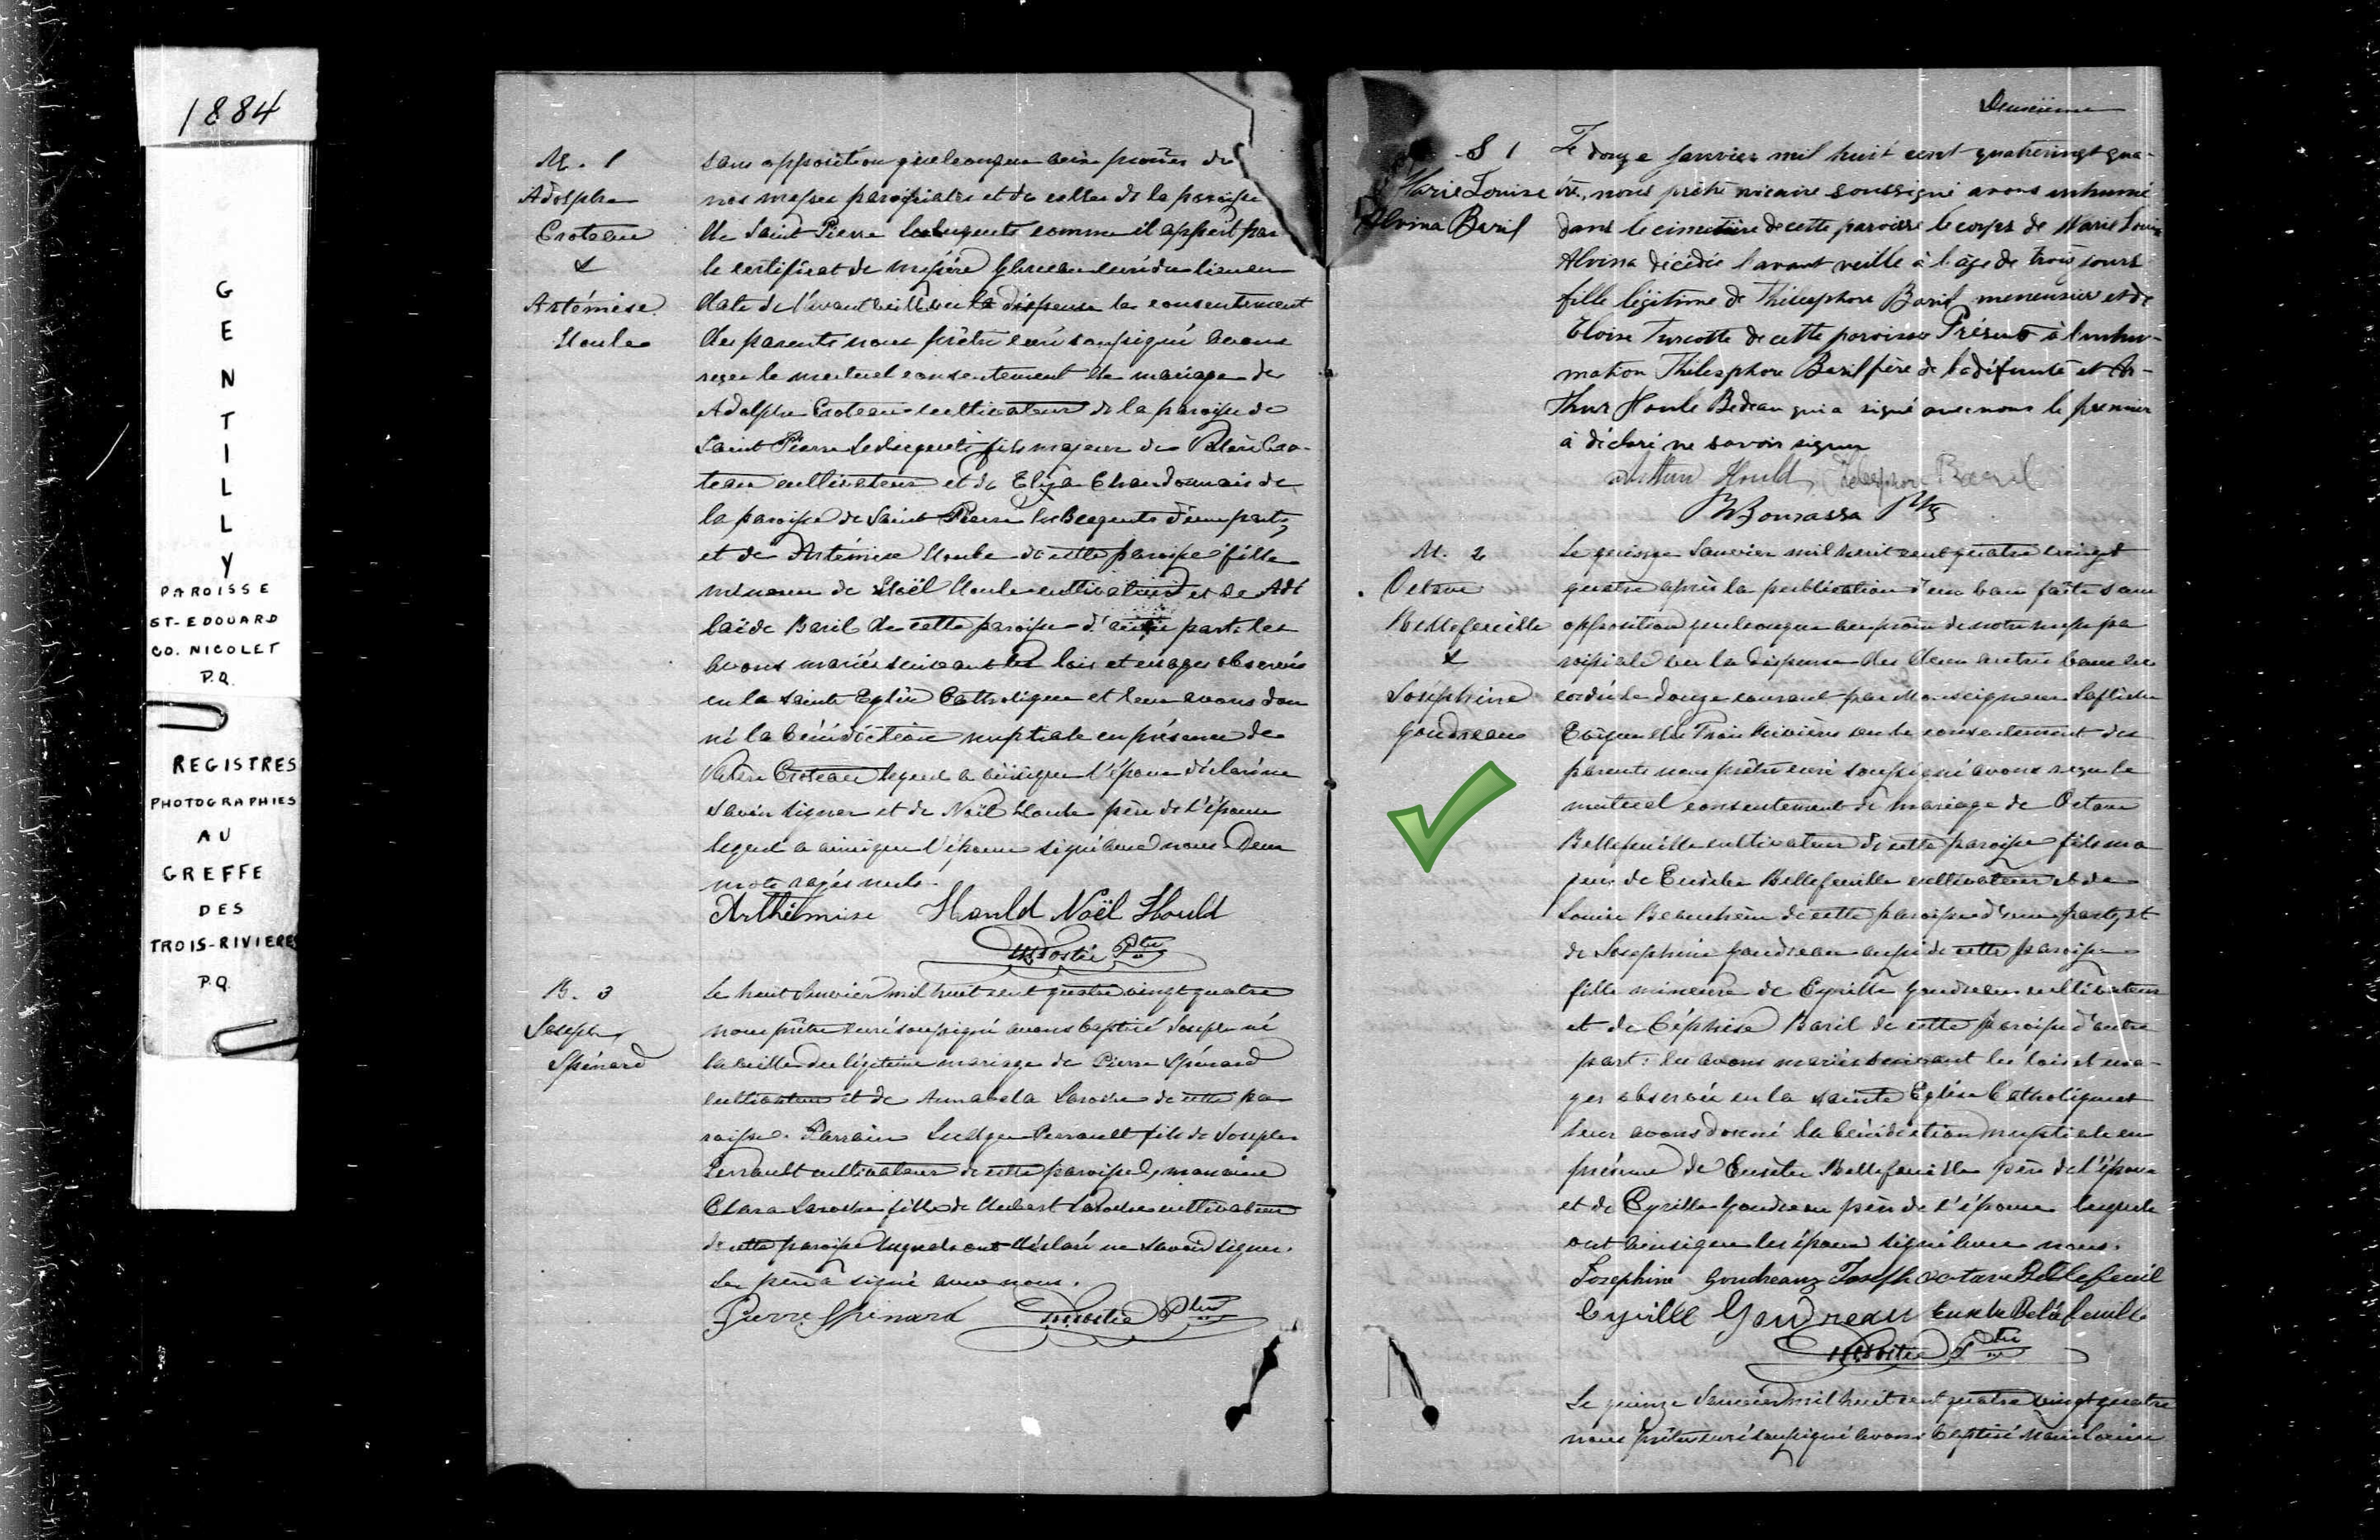 1884
GENTILLY
PAROISSE
ST-EDOUARD
CO. NICOLET
P.Q.
REGISTRES
PHOTOGRAPHIES
AU
GREFFE
DES
TROIS-RIVIERES
P.Q.
M. 1
Adolphe
Croteau
&
Artémise
Houle
sans opposition quelconque aux prônes de
nos messes paroissiales et de celles de la paroisse
de Saint Pierre les Becquets comme il appert par
le certificat de curé du lieu en
date de l'avant veille vu la dispense le consentement
des parents nous prêtre curé soussigné avons
reçu le mutuel consentement de mariage de
Adolphe Croteau cultivateur de la paroisse de
Saint Pierre les Becquets fils majeur de Valère Cro-
teau cultivateur et de Eliza Chandonnais de
la paroisse de Saint Pierre les Becquets d'une part,
et de Artémise Houle de cette paroisse fille
mineure de Noël Houle cultivateur et de Adé
laïde Baril de cette paroisse d'autre part: les
avons mariés suivant les lois et usages observés
en la Sainte Eglise Catholique et leur avons don
né la bénédiction nuptiale en présence de
Valère Croteau lequel a ainsi que l'époux déclaré ne
savoir signer et de Noël Houle père de l'épouse
lequel a ainsi que l'épouse signé avec nous. Deux
mots rayés nuls.
Arthémise Hould Noël Hould
Ptre
B. 3
Joseph
Spénard
Le huit Janvier mil huit cent quatre vingt quatre
nous prêtre curé soussigné avons baptisé Joseph né
la veille du légitime mariage de Pierre Spénard
cultivateur et de Annabela Laroche de cette pa
roisse. Parrain Ludger Perrault fils de Joseph
Perrault cultivateur de cette paroisse, marraine
Clara Laroche fille de Hubert Laroche cultivateur
de cette paroisse lesquels ont déclaré ne savoir signer.
Le père a signé avec nous.
Pierre Spénard Ptre
Deuxième
S 1
Marie Louise
Alvina Baril
Le douze Janvier mil huit cent quatrevingt qua-
tre, nous prêtre vicaire soussigné avons inhumé
dans le cimetière de cette paroisse le corps de Marie Louise
Alvina décédée l'avant veille à l'âge de trois jours
fille légitime de Thélesphore Baril menuisier et de
Eloïse Turcotte de cette paroisse Présents à l'inhu-
mation Thélesphore Baril père de la défunte et Ar-
thur Houle Bedeau qui a signé avec nous le premier
a déclaré ne savoir signer
Arthur Hould, Télesphore Baril
Bourassa Ptre
M. 2
Octave
Bellefeuille
&
Joséphine
Goudreau
Le quinze Janvier mil huit cent quatre vingt
quatre après la publication d'un ban faite sans
opposition quelconque au prône de notre messe pa
roissiale vu la dispense des deux autres bans ac
cordée le douze courant par Monseigneur Laflèche
Evêque des Trois Rivières vu le consentement des
parents nous prêtre curé soussigné avons reçu le
mutuel consentement de mariage de Octave
Bellefeuille cultivateur de cette paroisse fils ma
jeur de Eusèbe Bellefeuille cultivateur et de
Louise Beauchêne de cette paroisse d'une part, et
de Joséphine Goudreau aussi de cette paroisse
fille mineure de Cyrille Goudreau cultivateur
et de Céphise Baril de cette paroisse d'autre
part: les avons mariés suivant les lois et usa-
ges observés en la Sainte Eglise Catholique et
leur avons donné la bénédiction nuptiale en
présence de Eusèbe Bellefeuille père de l'époux
et de Cyrille Goudreau père de l'épouse lesquels
ont ainsi que les époux signé avec nous.
Josephine Goudreau Joseph octave Bellefeuil
Cyrille Goudreau Eusebe Bellefeuille
Ptre
Le quinze Janvier mil huit cent quatre vingt quatre
nous prêtre curé soussigné avons baptisé Marie Louise